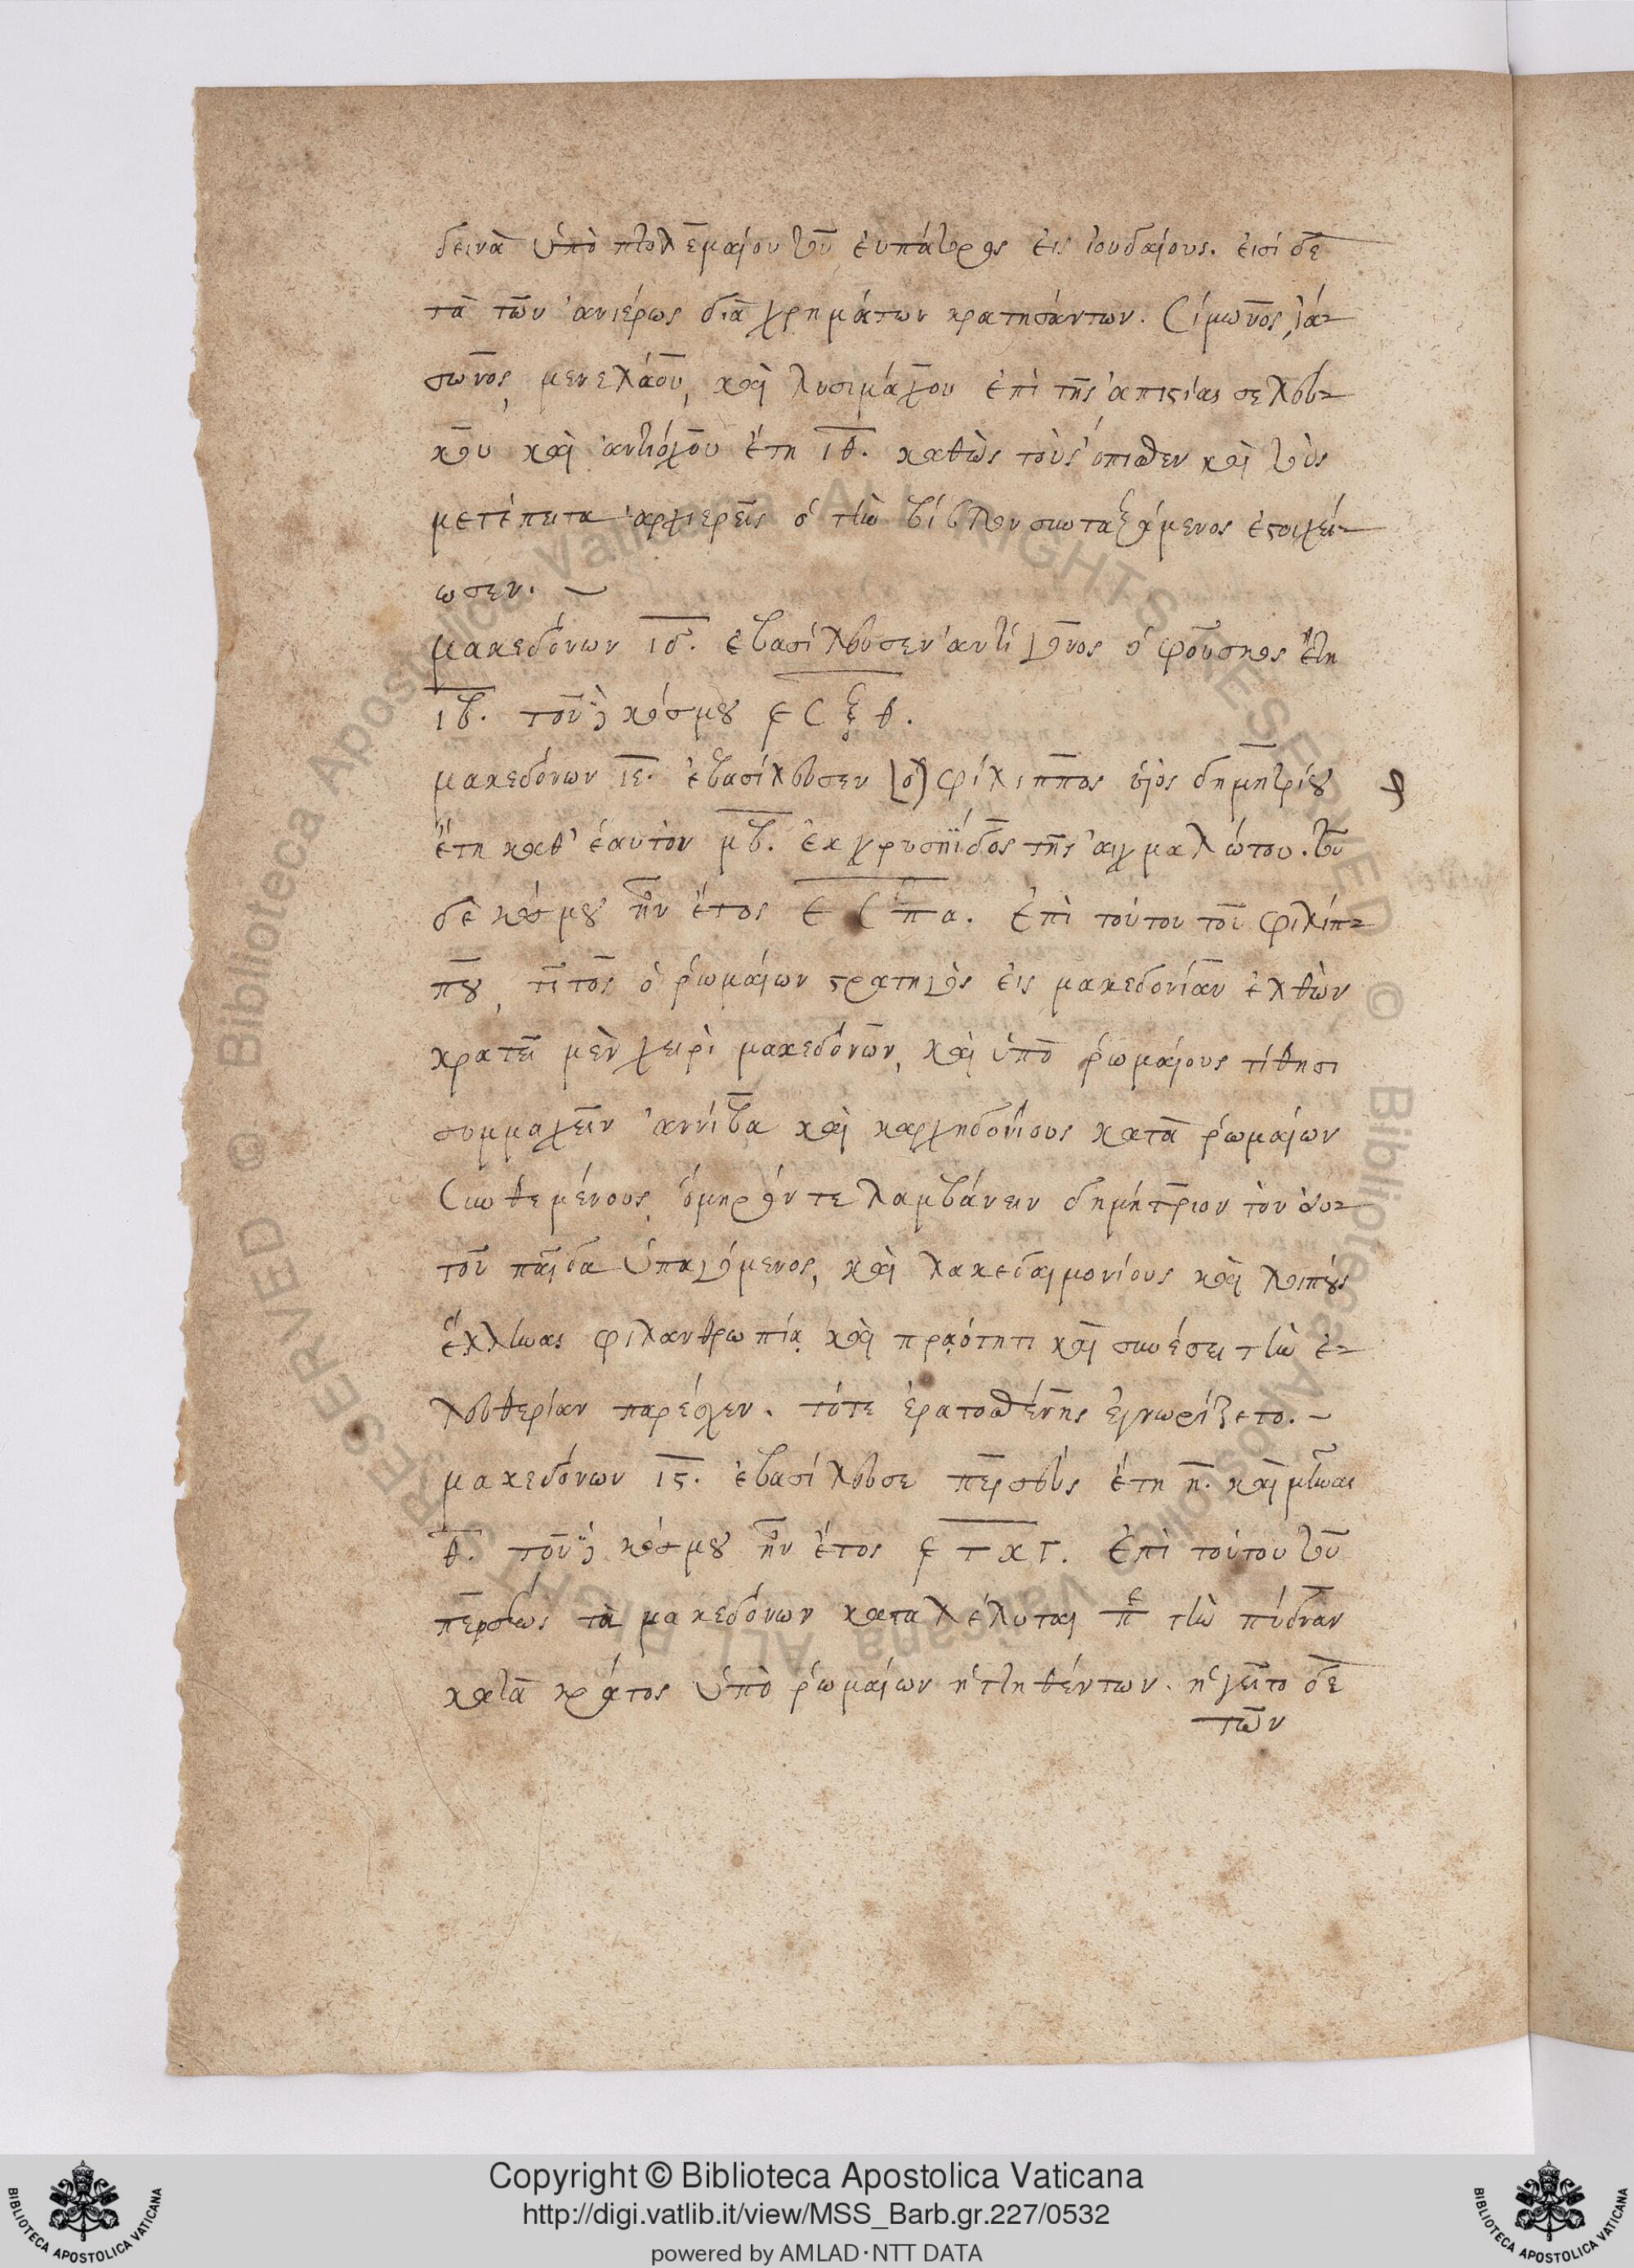 δεινὰ ὑπὸ πτολεμαίου τοῦ ἐυπάτορος εἰς ἰουδαίους. εἰσὶ δὲ
τὰ τῶν ἀνιέρως διὰ χρημάτων κρατησάντων. Σίμωνος, ἰά-
σωνος, μενελάου, καὶ λυσιμάχου ἐπὶ τῆς ἀπιστίας σελευ-
κου καὶ ἀντιόχου ἔτη ιθ. καθὼς τοὺς ὄπισθεν καὶ τοὺς
μετέπειτα ἀρχιερεῖς ὁ τὴν βίβλον συνταξάμενος ἐστοιχεί-
ωσεν.
μακεδόνων ιδ. ἐβασίλευσεν ἀντίγονος ὁ φούσκος ἔτη
ιβ. τοῦ δὲ κόσμου ͵εσξθ.
μακεδόνων ιε. ἐβασίλευσεν [ὁ] φίλιππος υἱὸς δημητρίου
ἔτη καθ' ἑαυτὸν μβ. ἐκ χρυσηΐδος τῆς αἰχμαλώτου. τοῦ
δὲ κόσμου ἦν ἔτος ͵εσπα. ἐπὶ τούτου τοῦ φιλίπ-
που, τίτος ὁ ῥωμαίων στρατηγὸς εἰς μακεδονίαν ἐλθὼν
κρατεῖ μὲν χειρὶ μακεδόνων, καὶ ὑπὸ ῥωμαίους τίθησι
συμμαχεῖν ἀννίβα καὶ καρχηδονίους κατὰ ῥωμαίων
συνθεμένους, ὅμηρόν τε λαμβάνειν δημήτριον τὸν αὐ-
τοῦ παῖδα ὑπαγόμενος, καὶ λακεδαιμονίους καὶ λοιποὺς
ἕλληνας φιλανθρωπίᾳ καὶ πρᾳότητι καὶ συνέσει τὴν ἐ-
λευθερίαν παρέσχεν. τότε ἐρατοσθένης ἐγνωρίζετο.
μακεδόνων ις. ἐβασίλευσε περσεὺς ἔτη η. καὶ μῆνας
θ. τοῦ δὲ κόσμου ἦν ἔτος ͵ετκγ. ἐπὶ τούτου τοῦ
περσέως τὰ μακεδόνων καταλέλυται περὶ τὴν πύδναν
κατὰ κράτος ὑπὸ ῥωμαίων ἡττηθέντων. ἡγεῖτο δὲ
τῶν
Copyright © Biblioteca Apostolica Vaticana
http://digi.vatlib.it/view/MSS_Barb.gr.227/0532
powered by AMLAD·NTT DATA
BIBLIOTECA APOSTOLICA VATICANA
BIBLIOTECA APOSTOLICA VATICANA